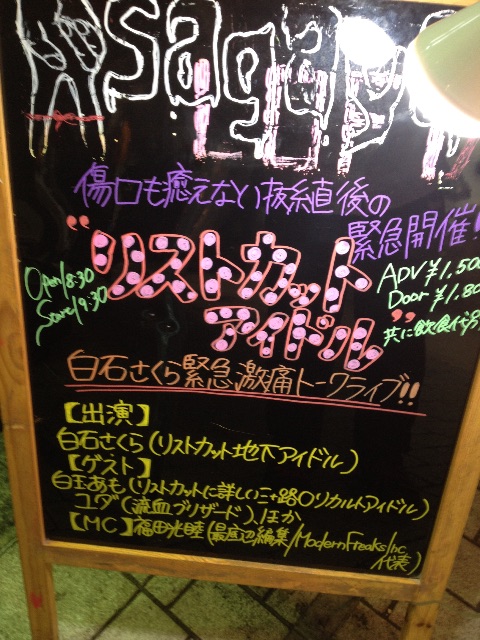 傷口も癒えない抜糸直後の
緊急開催!
“リストカット
アイドル”
Open18:30
Start19:30
ADV ¥1,500
Door ¥1,80
共に飲食代別
白石さくら緊急激痛トークライブ!!
【出演】
白石さくら(リストカット地下アイドル)
【ゲスト】
白玉あも(リストカットに詳しい三十路オカルトアイドル)
ユダ(流血ブリザード)、ほか
【MC】福田光睦(最底辺編集/ModernFreaksInc
代表)